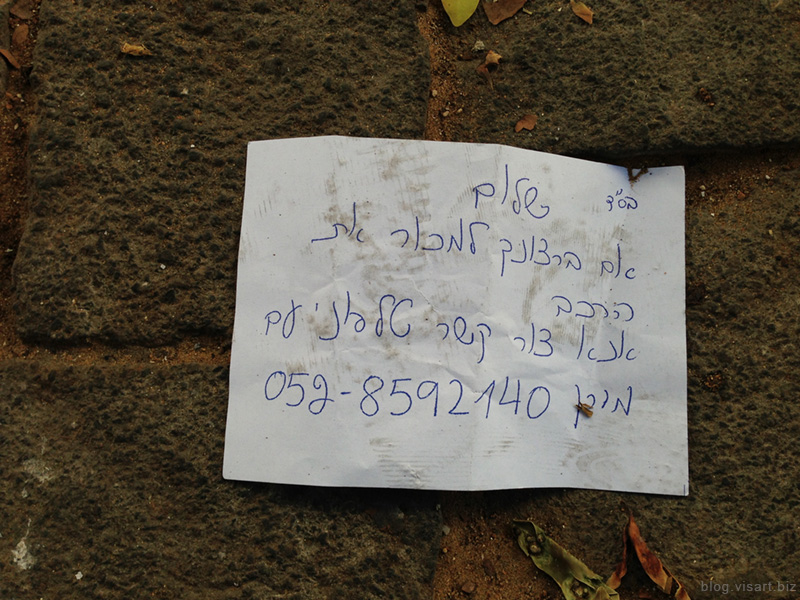 בס"ד
שלום
אם ברצונך למכור את
הרכב
אנא צור קשר טלפוני עם
מורן 052-8592140
blog.visart.biz